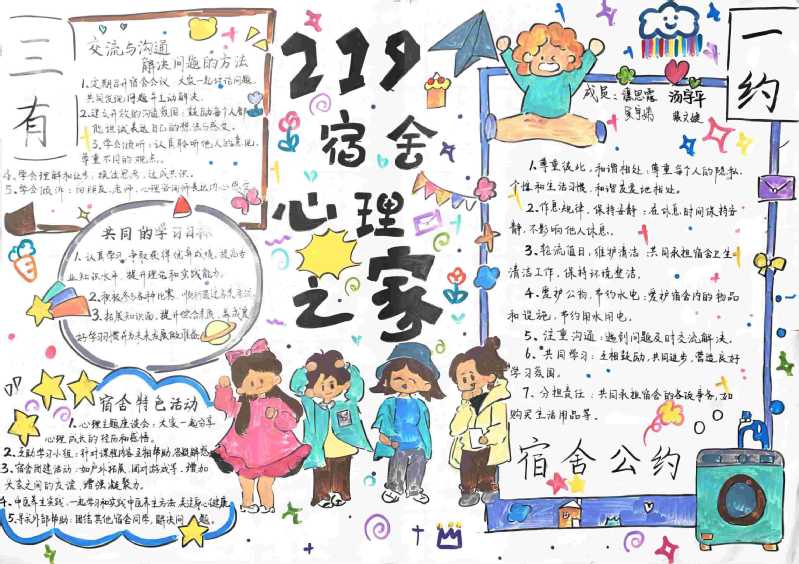 三有
交流与沟通
解决问题的方法
1.定期召开宿舍会议,大家一起讨论问题,
共同发现问题并主动解决。
2.建立开放的沟通氛围:鼓励每个人都
能坦诚表达自己的想法与感受。
3.学会倾听:认真聆听他人的意见,
尊重不同的观点。
4.学会理解和让步,换位思考,达成共识。
5.学会倾诉:向朋友、老师、心理咨询师表达内心感受
共同的学习目标
1.认真学习,争取获得优异成绩,提高专
业知识水平,提升理论和实践能力。
2.积极参与各种比赛,顺利通过各类考试
3.拓展知识面,提升综合素质,养成良
好学习惯并为未来发展做准备
宿舍特色活动
1.心理主题座谈会:大家一起分享
心理成长的经历和感悟。
2.互助学习小组:针对课程内容互相帮助、答疑解惑
3.宿舍团建活动:如户外拓展、团对游戏等,增加
大家之间的友谊,增强凝聚力。
4.中医养生实践,一起学习和实践中医养生方法,关注身心健康
5.寻求外部帮助:团结其他宿舍同学,解决问题。
219
宿舍
心理
之家
一约
成员:
汤宇平
1.尊重彼此,和谐相处,尊重每个人的隐私、
个性和生活习惯,和谐友爱地相处。
2.作息规律,保持安静:在休息时间保持安
静,不影响他人休息。
3.轮流值日,维护清洁:共同承担宿舍卫生
清洁工作,保持环境整洁。
4.爱护公物,节约水电:爱护宿舍内的物品
和设施,节约用水用电。
5、注重沟通:遇到问题及时交流解决。
6、共同学习:互相鼓励,共同进步,营造良好
学习氛围。
7、分担责任:共同承担宿舍的各项事务,如
购买生活用品等。
宿舍公约